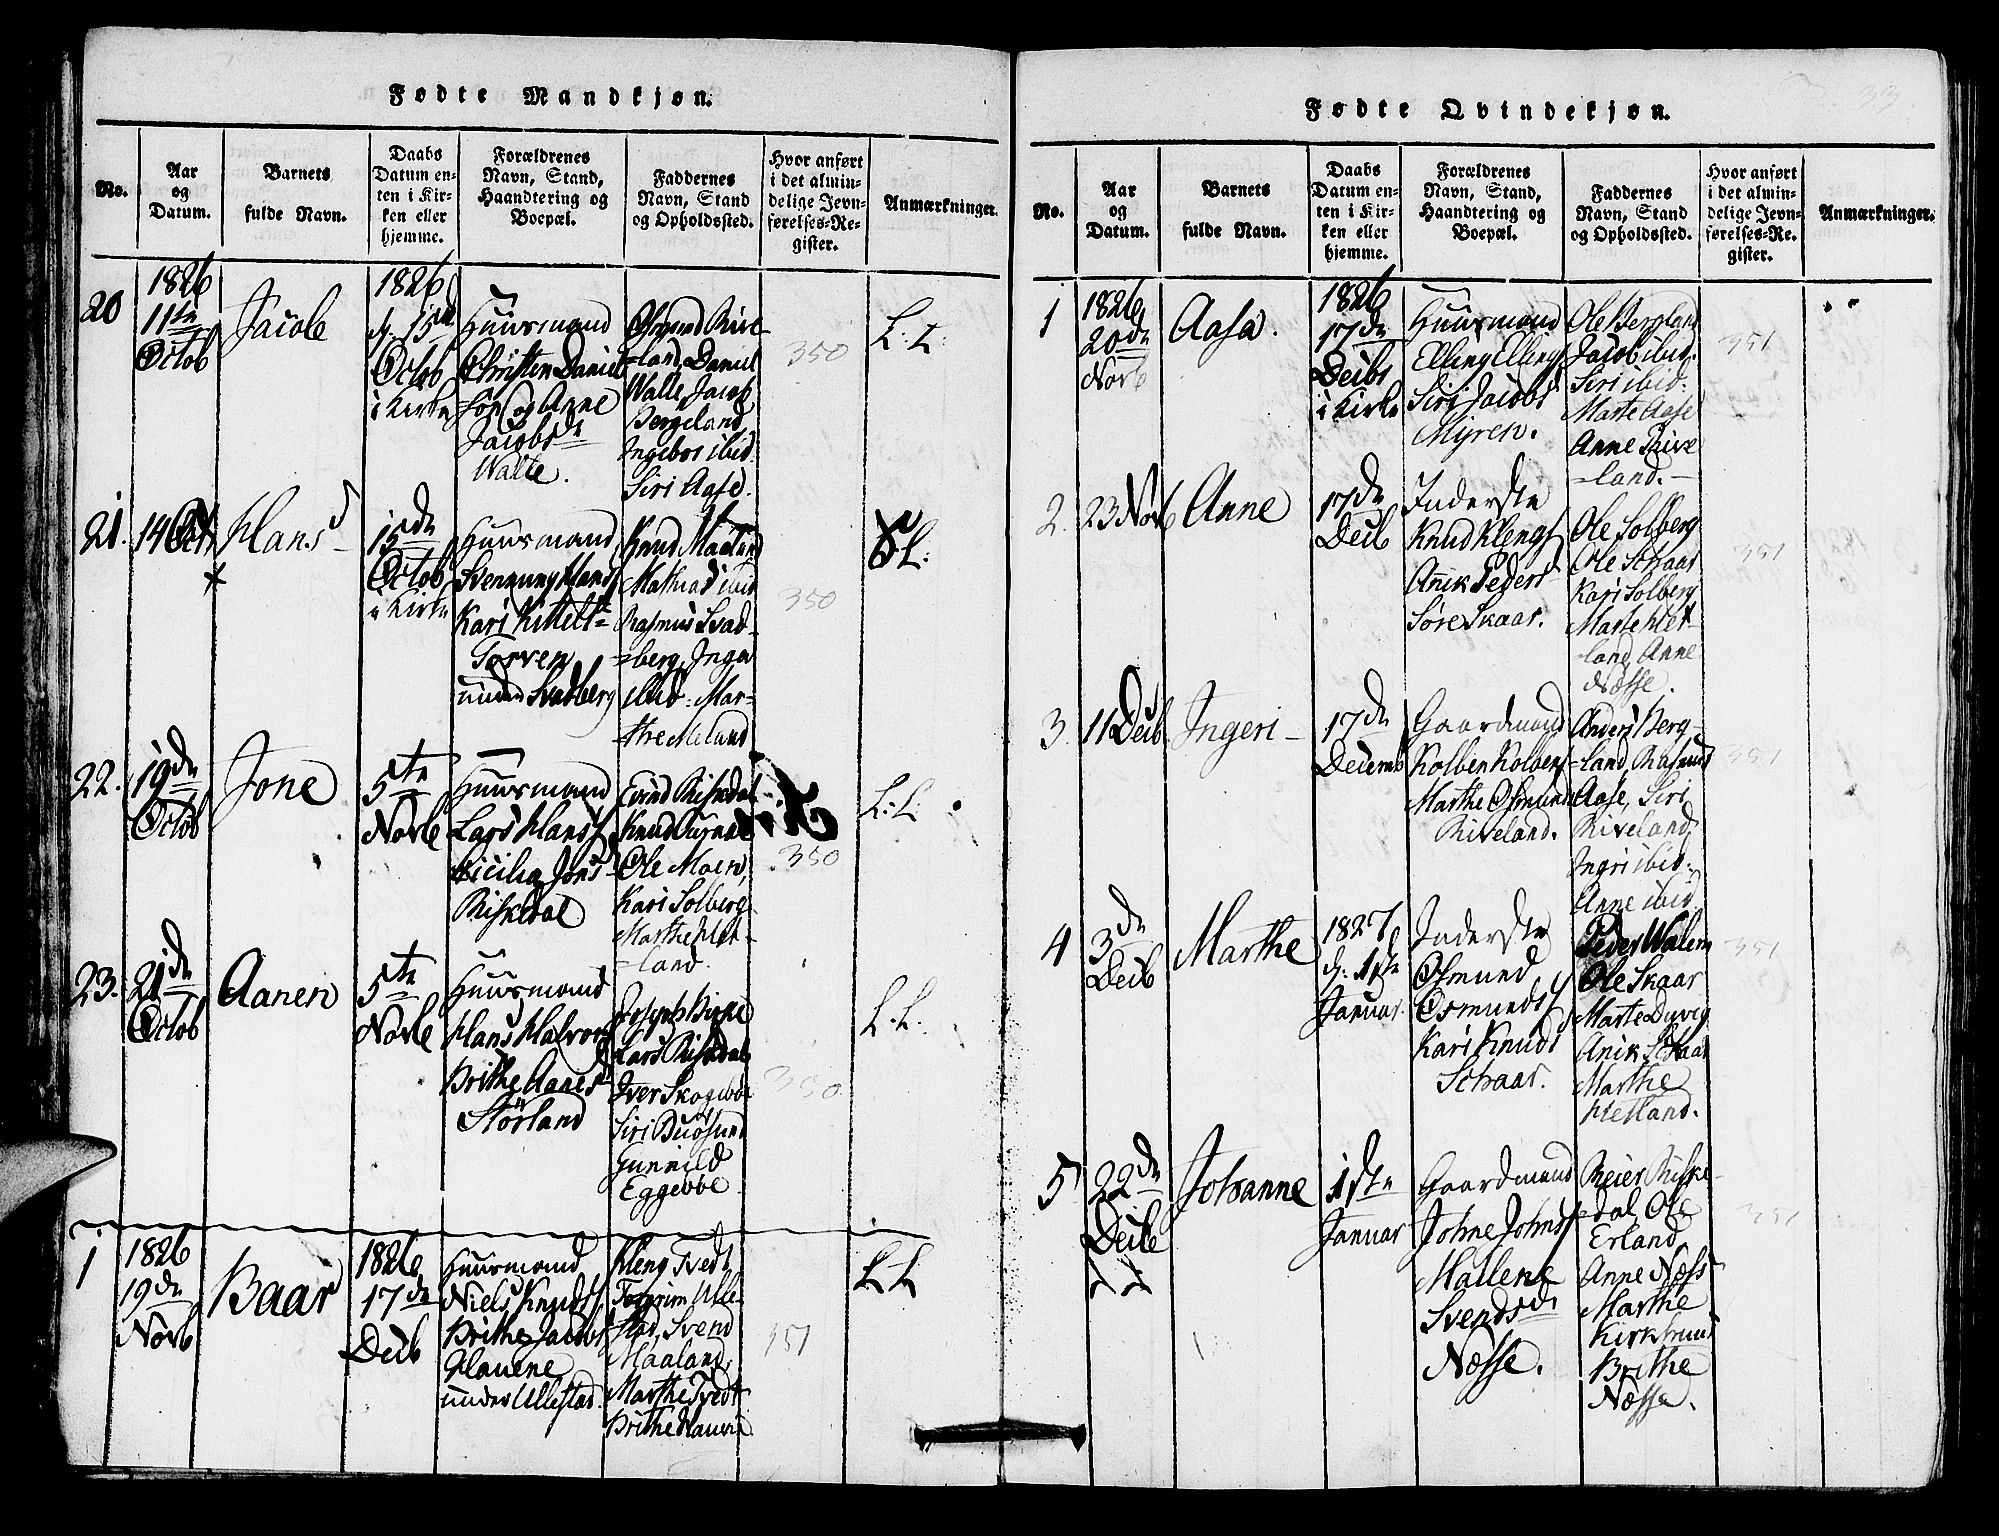 Fødte Mandkjøn.
No.
Aar
og
Datum.
Barnets
fulde Navn.
Daabs
Datum en-
ten i Kir-
ken eller
hjemme.
Forældrenes
Navn, Stand,
Haandtering og
Boepæl.
Faddernes
Navn, Stand
og Opholdssted.
Hvor anført
i det almin-
delige Jevn-
førelses-Re-
gister.
Anmærkninger.
20
1826
11te
Octob
Jacob
1826
d. 15de
Octob
i Kirke
Huusmand
Christen Daniel-
søn og Anne
Jacobsdr
Walle.
Osmund Rive-
land, Daniel
Walle, Jacob
Bergeland,
Ingebor ibid:
Siri Aase.
350
L: L:
21.
14 Oct
Hans
15de
Octob
i Kirke
Huusmand
Svennung Hans
Kari Kittels
Torven
under Svadberg
Knud Maaland
Mathias ibid
Rasmus Svad-
berg, Inger
ibid: Mar-
the Meland
350
L:
22.
19de
Octob
Jone
5te
Novb
Huusmand
Lars Hans
Sicilia Jons
Riskedal
Eivind Riskedal
Knud
Ole Moen,
Kari Solberg
Marthe Het-
land.
350
L: L:
23.
21de
Octob
Aanen
5te
Novb
Huusmand
Hans Halvor
Brithe Aanes
Störland
Joseph Birke
Lars Riskedal
Iver Skogebøe
Siri Buøsund
Gunnild
Eggebøe
350
L. L.
1
1826
19de
Novb
Baar
1826
17de
Decb
Huusmand
Niels Knuds
Brithe Jacobs
Hauene
under Ullestad.
Kleng Tvedt
Torgrim Ulle-
stad, Svend
Maaland,
Marthe Tvedt
Brithe Hauene
351
L L
Fødte Qvindekjøn.
33
No.
Aar
og
Datum.
Barnets
fulde Navn.
Daabs
Datum en-
ten i Kir-
ken eller
hjemme.
Forældrenes
Navn, Stand,
Haandtering og
Boepæl.
Faddernes
Navn, Stand
og Opholdssted.
Hvor anført
i det almin-
delige Jevn-
førelses-Re-
gister.
Anmærkninger.
1
1826
20de
Novb
Aasa.
1826
17de
Decbr
i Kirke
Huusmand
Elling Ellings
Siri Jacobs
Myren.
Ole Bergland
Jacob ibid.
Siri ibid:
Marte Aase
Anne Rive
land.
351
2.
23 Novb
Anne
17de
Decb
Inderste
Knud Klengs
Anik Peders
Søre Skaar.
Ole Solberg
Ole Schaar
Kari Solberg
Marte Het-
land, Anne
Næsse.
351
3.
11 Decb
Ingeri
17de
Decemb
Gaardmand
Kolben Kolbens
Marthe Osmunds
Riveland.
Anders Berg-
land, Rasmus
Aase, Siri
Riveland,
Ingri ibid:
Anne ibid.
351
4
3de
Decb
Marthe
1827
d. 1ste
Januar.
Inderste
Osmund
Osmunds
Kari Knuds
Schaar.
Peder Walem
Ole Skaar
Marte Dyveg
Anik Schaar
Marthe
Hetland.
351
5
22de
Decb
Johanne
1ste
Januar
Gaardmand
Johne Johns
Mallene
Svendsdr
Næsse.
Reier Riske-
dal Ole
Erland,
Anne Næss
Marthe
Kirkhuus
Brithe
Næsse.
351